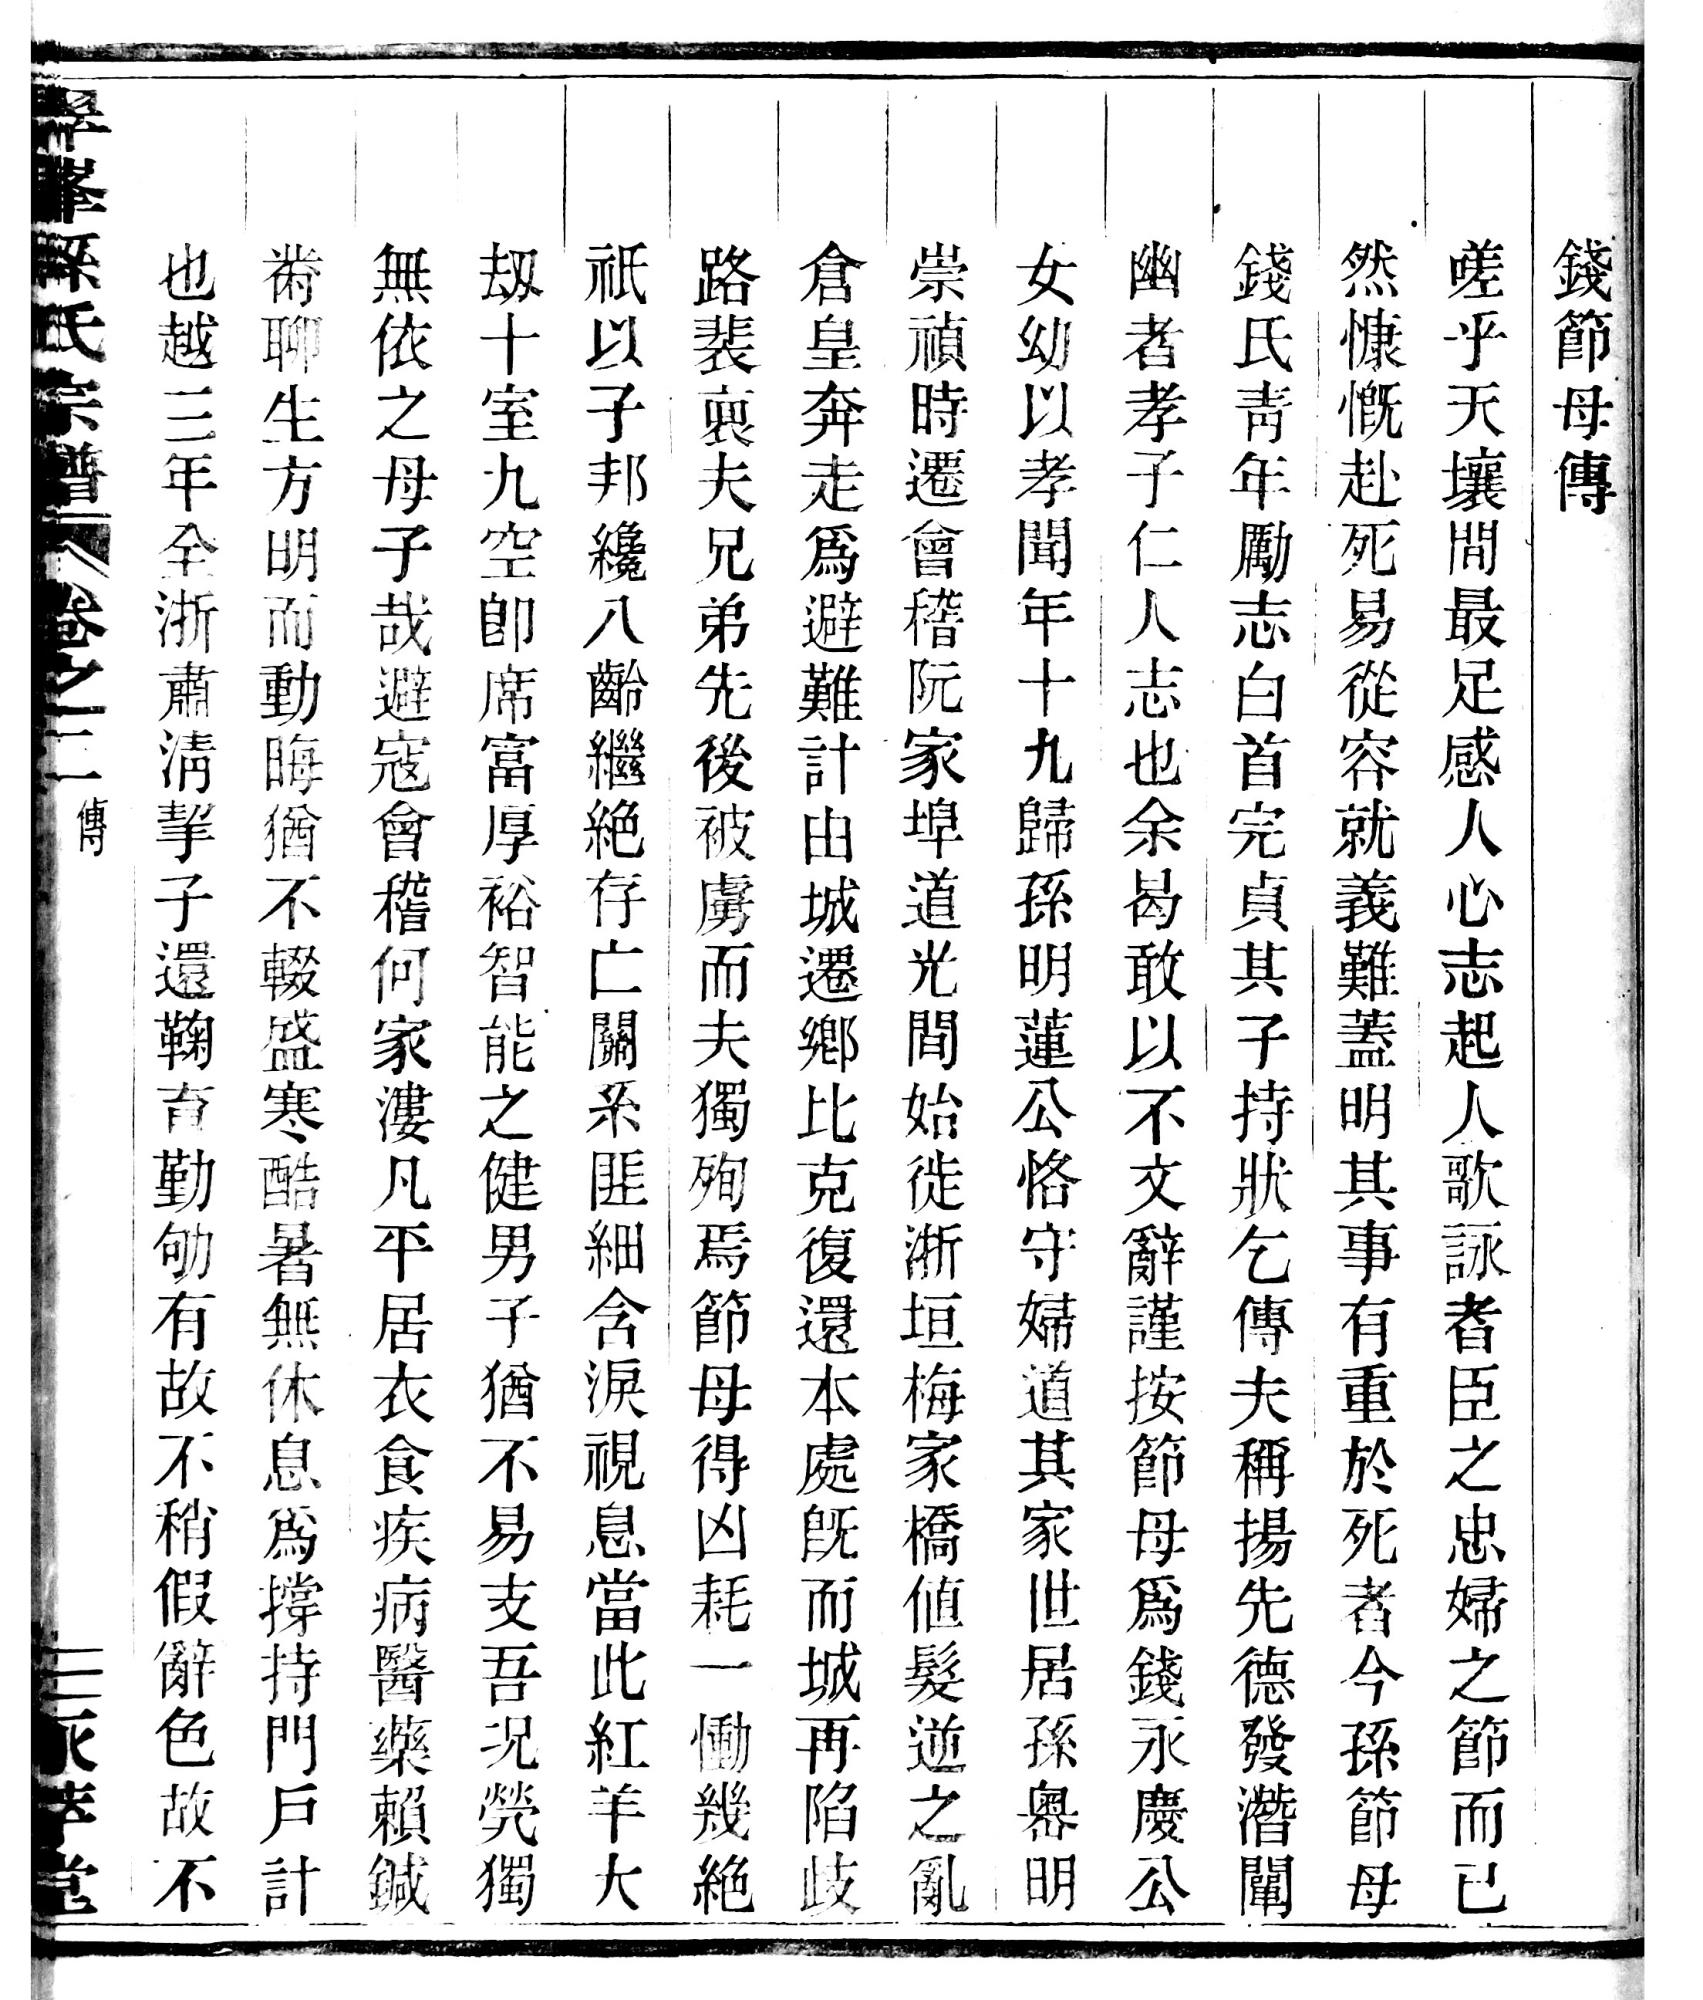 錢節母傳
嗟乎天壤間最足感人心志起人歌詠者臣之忠婦之節而已
然慷慨赴死易從容就義難蓋明其事有重於死者今孫節母
錢氏靑年勵志白首完貞其子持狀乞傳夫稱揚先德發潛闡
幽者孝子仁人志也余曷敢以不文辭謹按節母爲錢永慶公
女幼以孝聞年十九歸孫明蓮公恪守婦道其家世居孫嶴明
崇禎時遷會稽阮家埠道光間始徙浙垣梅家橋値髮逆之亂
倉皇奔走爲避難計由城遷鄉比克復還本處旣而城再陷歧
路裴裒夫兄弟先後被虜而夫獨殉焉節母得凶耗一慟幾絶
祇以子邦纔八齡繼絶存亡關系匪細含淚視息當此紅羊大
刼十室九空卽席富厚裕智能之健男子猶不易支吾况煢獨
無依之母子哉避寇會稽何家漊凡平居衣食疾病醫藥賴鍼
黹聊生方明而動晦猶不輟盛寒酷暑無休息爲撐持門戶計
也越三年全浙肅淸挈子還鞠育勤劬有故不稍假辭色故不
孫氏宗譜 卷之二 傳 二 萃堂